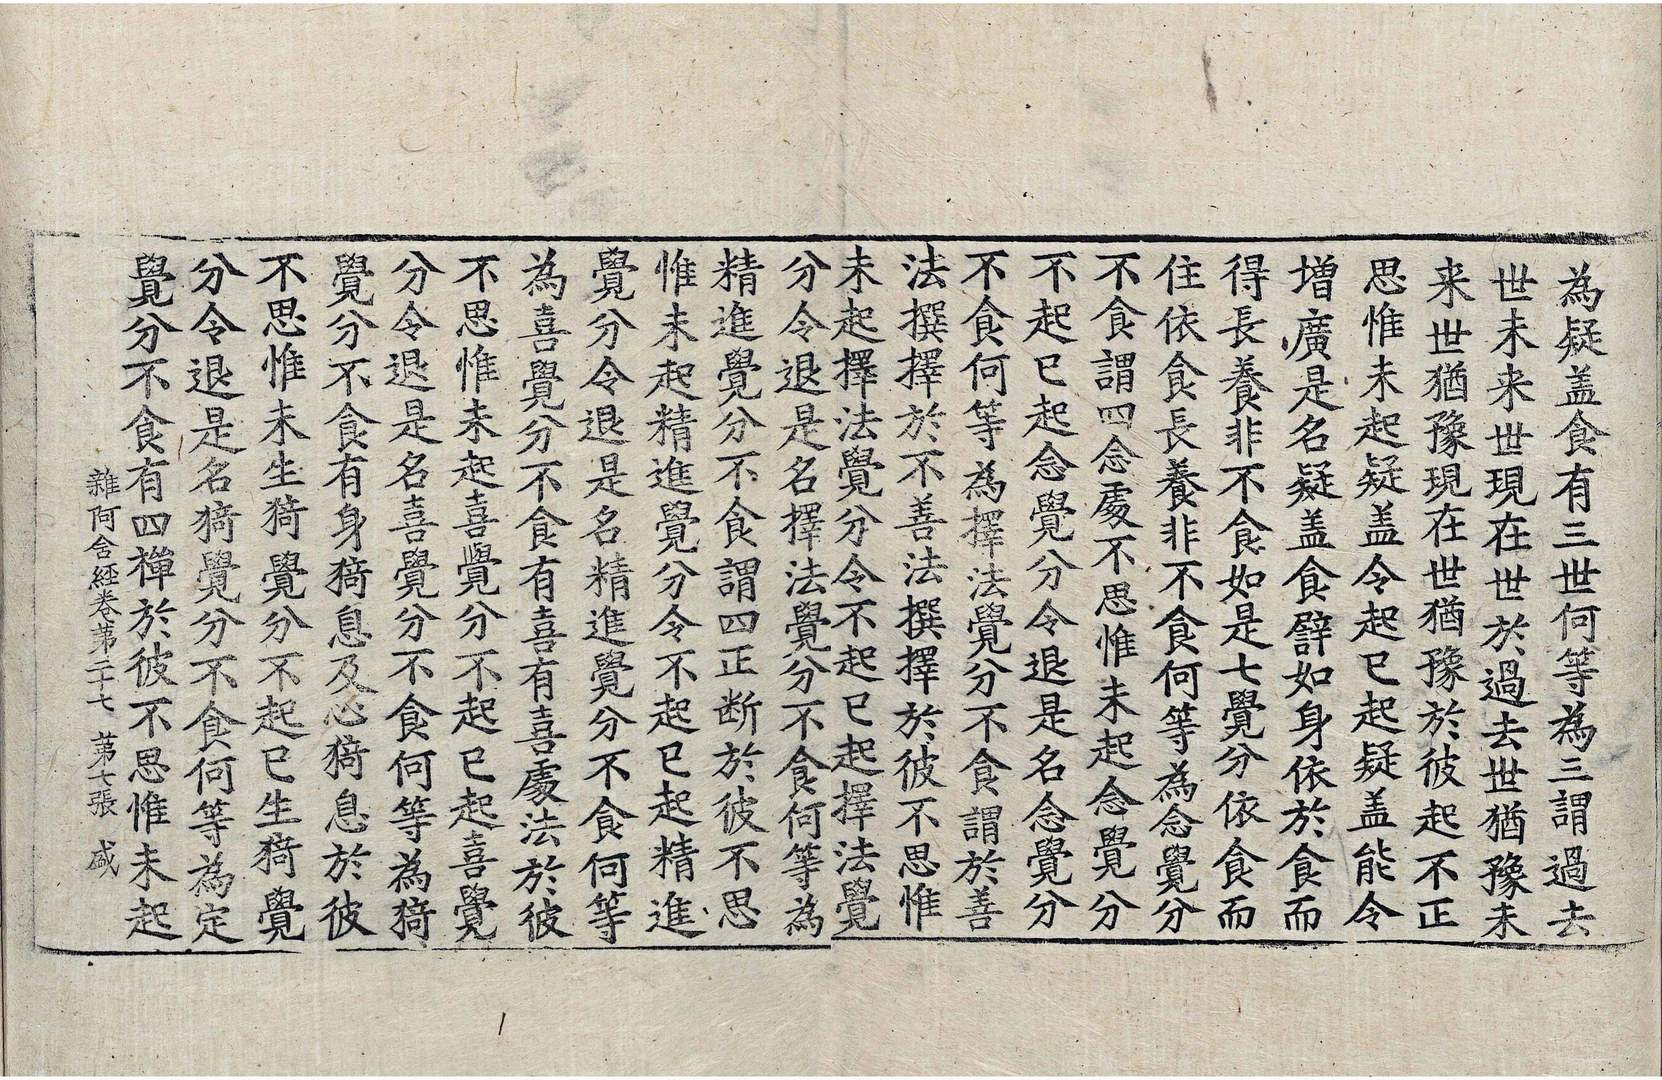 為疑盖食有三世何等為三謂過去
世未来世現在世於過去世猶豫未
来世猶豫現在世猶豫於彼起不正
思惟未起疑盖令起已起疑盖能令
增廣是名疑盖食譬如身依於食而
得長養非不食如是七覺分依食而
住依食長養非不食何等為念覺分
不食謂四念處不思惟未起念覺分
不起已起念覺分令退是名念覺分
不食何等為擇法覺分不食謂於善
法撰擇於不善法撰擇於彼不思惟
未起擇法覺分令不起已起擇法覺
分令退是名擇法覺分不食何等為
精進覺分不食謂四正断於彼不思
惟未起精進覺分令不起已起精進
覺分令退是名精進覺分不食何等
為喜覺分不食有喜有喜處法於彼
不思惟未起喜覺分不起已起喜覺
分令退是名喜覺分不食何等為猗
覺分不食有身猗息及心猗息於彼
不思惟未生猗覺分不起已生猗覺
分令退是名猗覺分不食何等為定
覺分不食有四禪於彼不思惟未起
雜阿含經卷第二十七 第七張 咸